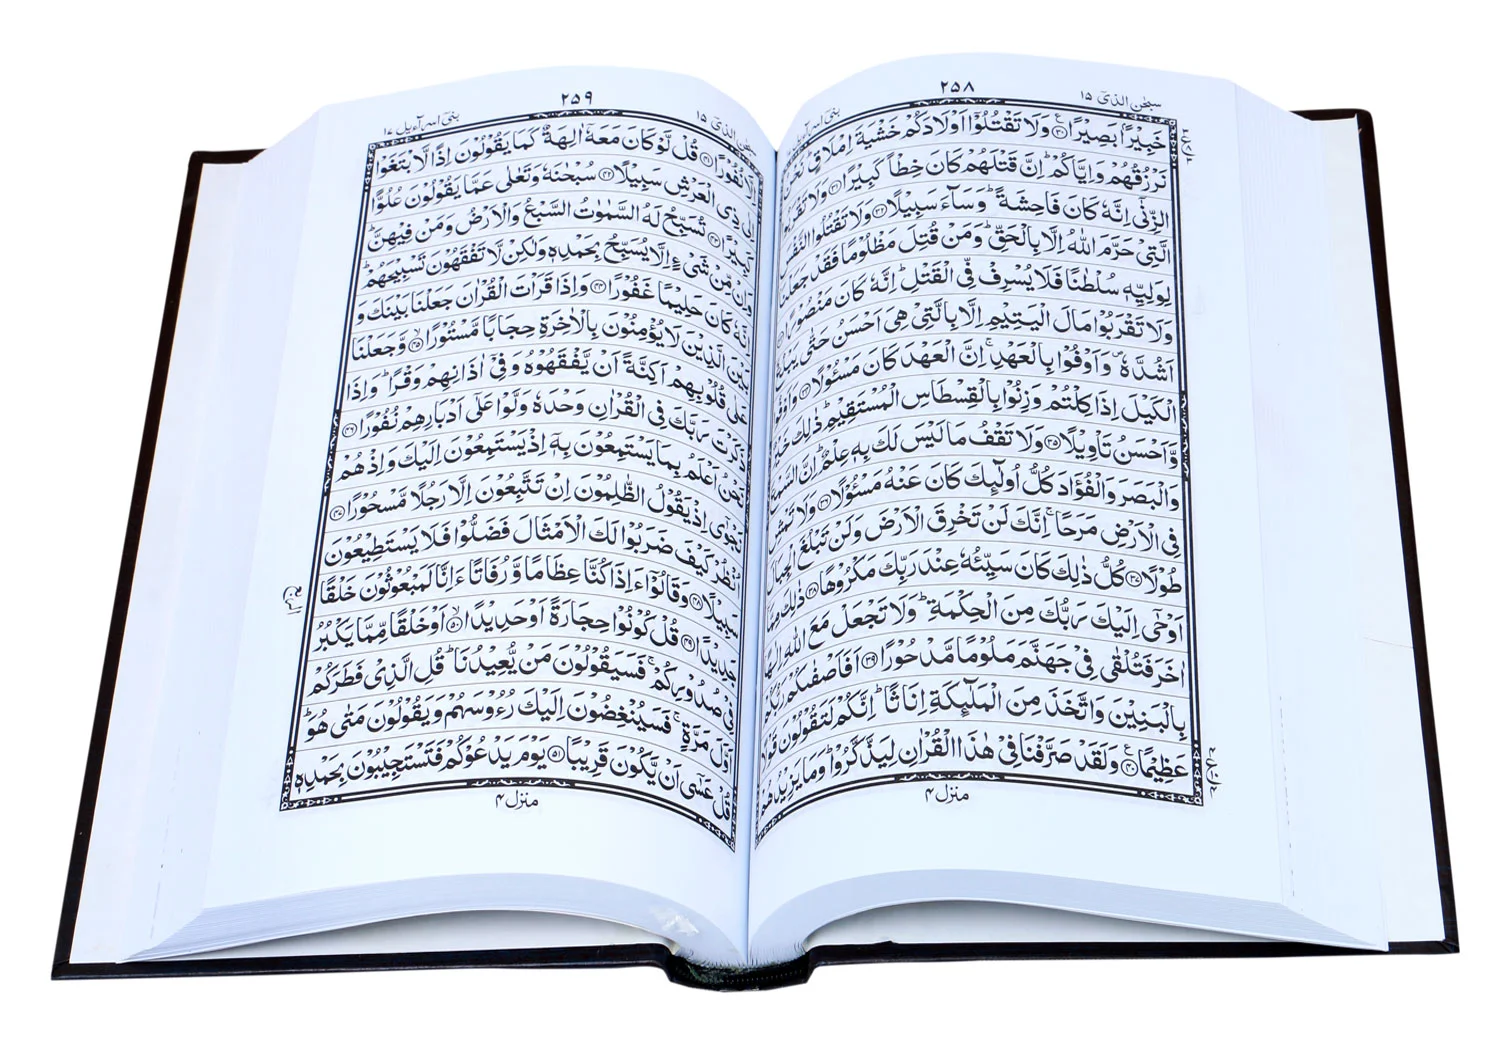 سبحٰن الذیٓ ۱۵
۲۵۸
بنیٓ اسرآءیل ۱۷
خَبِيْرًۢا بَصِيْرًا ﴿۳۰﴾ وَلَا تَقْتُلُوْٓا اَوْلَادَكُمْ خَشْيَةَ اِمْلَاقٍ ؕ نَحْنُ
نَرْزُقُهُمْ وَاِيَّاكُمْ ؕ اِنَّ قَتْلَهُمْ كَانَ خِطْاً كَبِيْرًا ﴿۳۱﴾ وَلَا تَقْرَبُوا
الزِّنٰٓى اِنَّهٗ كَانَ فَاحِشَةً ؕ وَسَآءَ سَبِيْلًا ﴿۳۲﴾ وَلَا تَقْتُلُوا النَّفْسَ
الَّتِيْ حَرَّمَ اللّٰهُ اِلَّا بِالْحَقِّ ؕ وَمَنْ قُتِلَ مَظْلُوْمًا فَقَدْ جَعَلْنَا
لِوَلِيِّهٖ سُلْطٰنًا فَلَا يُسْرِفْ فِّي الْقَتْلِ ؕ اِنَّهٗ كَانَ مَنْصُوْرًا
وَلَا تَقْرَبُوْا مَالَ الْيَتِيْمِ اِلَّا بِالَّتِيْ هِيَ اَحْسَنُ حَتّٰى يَبْلُغَ
اَشُدَّهٗ ۪ وَاَوْفُوْا بِالْعَهْدِ ۚ اِنَّ الْعَهْدَ كَانَ مَسْئُوْلًا ﴿۳۴﴾ وَاَوْفُوا
الْكَيْلَ اِذَا كِلْتُمْ وَزِنُوْا بِالْقِسْطَاسِ الْمُسْتَقِيْمِ ؕ ذٰلِكَ خَيْرٌ
وَّاَحْسَنُ تَاْوِيْلًا ﴿۳۵﴾ وَلَا تَقْفُ مَا لَيْسَ لَكَ بِهٖ عِلْمٌ ؕ اِنَّ السَّمْعَ
وَالْبَصَرَ وَالْفُؤَادَ كُلُّ اُولٰٓئِكَ كَانَ عَنْهُ مَسْئُوْلًا ﴿۳۶﴾ وَلَا تَمْشِ
فِي الْاَرْضِ مَرَحًا ۚ اِنَّكَ لَنْ تَخْرِقَ الْاَرْضَ وَلَنْ تَبْلُغَ الْجِبَالَ
طُوْلًا ﴿۳۷﴾ كُلُّ ذٰلِكَ كَانَ سَيِّئُهٗ عِنْدَ رَبِّكَ مَكْرُوْهًا ﴿۳۸﴾ ذٰلِكَ مِمَّآ
اَوْحٰٓى اِلَيْكَ رَبُّكَ مِنَ الْحِكْمَةِ ؕ وَلَا تَجْعَلْ مَعَ اللّٰهِ اِلٰهًا
اٰخَرَ فَتُلْقٰى فِيْ جَهَنَّمَ مَلُوْمًا مَّدْحُوْرًا ﴿۳۹﴾ اَفَاَصْفٰىكُمْ رَبُّكُمْ
بِالْبَنِيْنَ وَاتَّخَذَ مِنَ الْمَلٰٓئِكَةِ اِنَاثًا ؕ اِنَّكُمْ لَتَقُوْلُوْنَ قَوْلًا
عَظِيْمًا ﴿۴۰﴾ وَلَقَدْ صَرَّفْنَا فِيْ هٰذَا الْقُرْاٰنِ لِيَذَّكَّرُوْا ؕ وَمَا يَزِيْدُهُمْ
منزل ۴
سبحٰن الذیٓ ۱۵
۲۵۹
بنیٓ اسرآءیل ۱۷
اِلَّا نُفُوْرًا ﴿۴۱﴾ قُلْ لَّوْ كَانَ مَعَهٗٓ اٰلِهَةٌ كَمَا يَقُوْلُوْنَ اِذًا لَّابْتَغَوْا
اِلٰى ذِي الْعَرْشِ سَبِيْلًا ﴿۴۲﴾ سُبْحٰنَهٗ وَتَعٰلٰى عَمَّا يَقُوْلُوْنَ عُلُوًّا
كَبِيْرًا ﴿۴۳﴾ تُسَبِّحُ لَهُ السَّمٰوٰتُ السَّبْعُ وَالْاَرْضُ وَمَنْ فِيْهِنَّ ؕ
وَاِنْ مِّنْ شَيْءٍ اِلَّا يُسَبِّحُ بِحَمْدِهٖ وَلٰكِنْ لَّا تَفْقَهُوْنَ تَسْبِيْحَهُمْ ؕ
اِنَّهٗ كَانَ حَلِيْمًا غَفُوْرًا ﴿۴۴﴾ وَاِذَا قَرَاْتَ الْقُرْاٰنَ جَعَلْنَا بَيْنَكَ وَ
بَيْنَ الَّذِيْنَ لَا يُؤْمِنُوْنَ بِالْاٰخِرَةِ حِجَابًا مَّسْتُوْرًا ﴿۴۵﴾ وَّجَعَلْنَا
عَلٰى قُلُوْبِهِمْ اَكِنَّةً اَنْ يَّفْقَهُوْهُ وَفِيْٓ اٰذَانِهِمْ وَقْرًا ؕ وَاِذَا
ذَكَرْتَ رَبَّكَ فِي الْقُرْاٰنِ وَحْدَهٗ وَلَّوْا عَلٰٓى اَدْبَارِهِمْ نُفُوْرًا ﴿۴۶﴾
نَحْنُ اَعْلَمُ بِمَا يَسْتَمِعُوْنَ بِهٖٓ اِذْ يَسْتَمِعُوْنَ اِلَيْكَ وَاِذْ هُمْ
نَجْوٰٓى اِذْ يَقُوْلُ الظّٰلِمُوْنَ اِنْ تَتَّبِعُوْنَ اِلَّا رَجُلًا مَّسْحُوْرًا ﴿۴۷﴾
اُنْظُرْ كَيْفَ ضَرَبُوْا لَكَ الْاَمْثَالَ فَضَلُّوْا فَلَا يَسْتَطِيْعُوْنَ
سَبِيْلًا ﴿۴۸﴾ وَقَالُوْٓا ءَاِذَا كُنَّا عِظَامًا وَّرُفَاتًا ءَاِنَّا لَمَبْعُوْثُوْنَ خَلْقًا
جَدِيْدًا ﴿۴۹﴾ قُلْ كُوْنُوْا حِجَارَةً اَوْ حَدِيْدًا ﴿۵۰﴾ اَوْ خَلْقًا مِّمَّا يَكْبُرُ
فِيْ صُدُوْرِكُمْ ۚ فَسَيَقُوْلُوْنَ مَنْ يُّعِيْدُنَا ؕ قُلِ الَّذِيْ فَطَرَكُمْ
اَوَّلَ مَرَّةٍ ۚ فَسَيُنْغِضُوْنَ اِلَيْكَ رُءُوْسَهُمْ وَيَقُوْلُوْنَ مَتٰى هُوَ ؕ
قُلْ عَسٰٓى اَنْ يَّكُوْنَ قَرِيْبًا ﴿۵۱﴾ يَوْمَ يَدْعُوْكُمْ فَتَسْتَجِيْبُوْنَ بِحَمْدِهٖ
منزل ۴